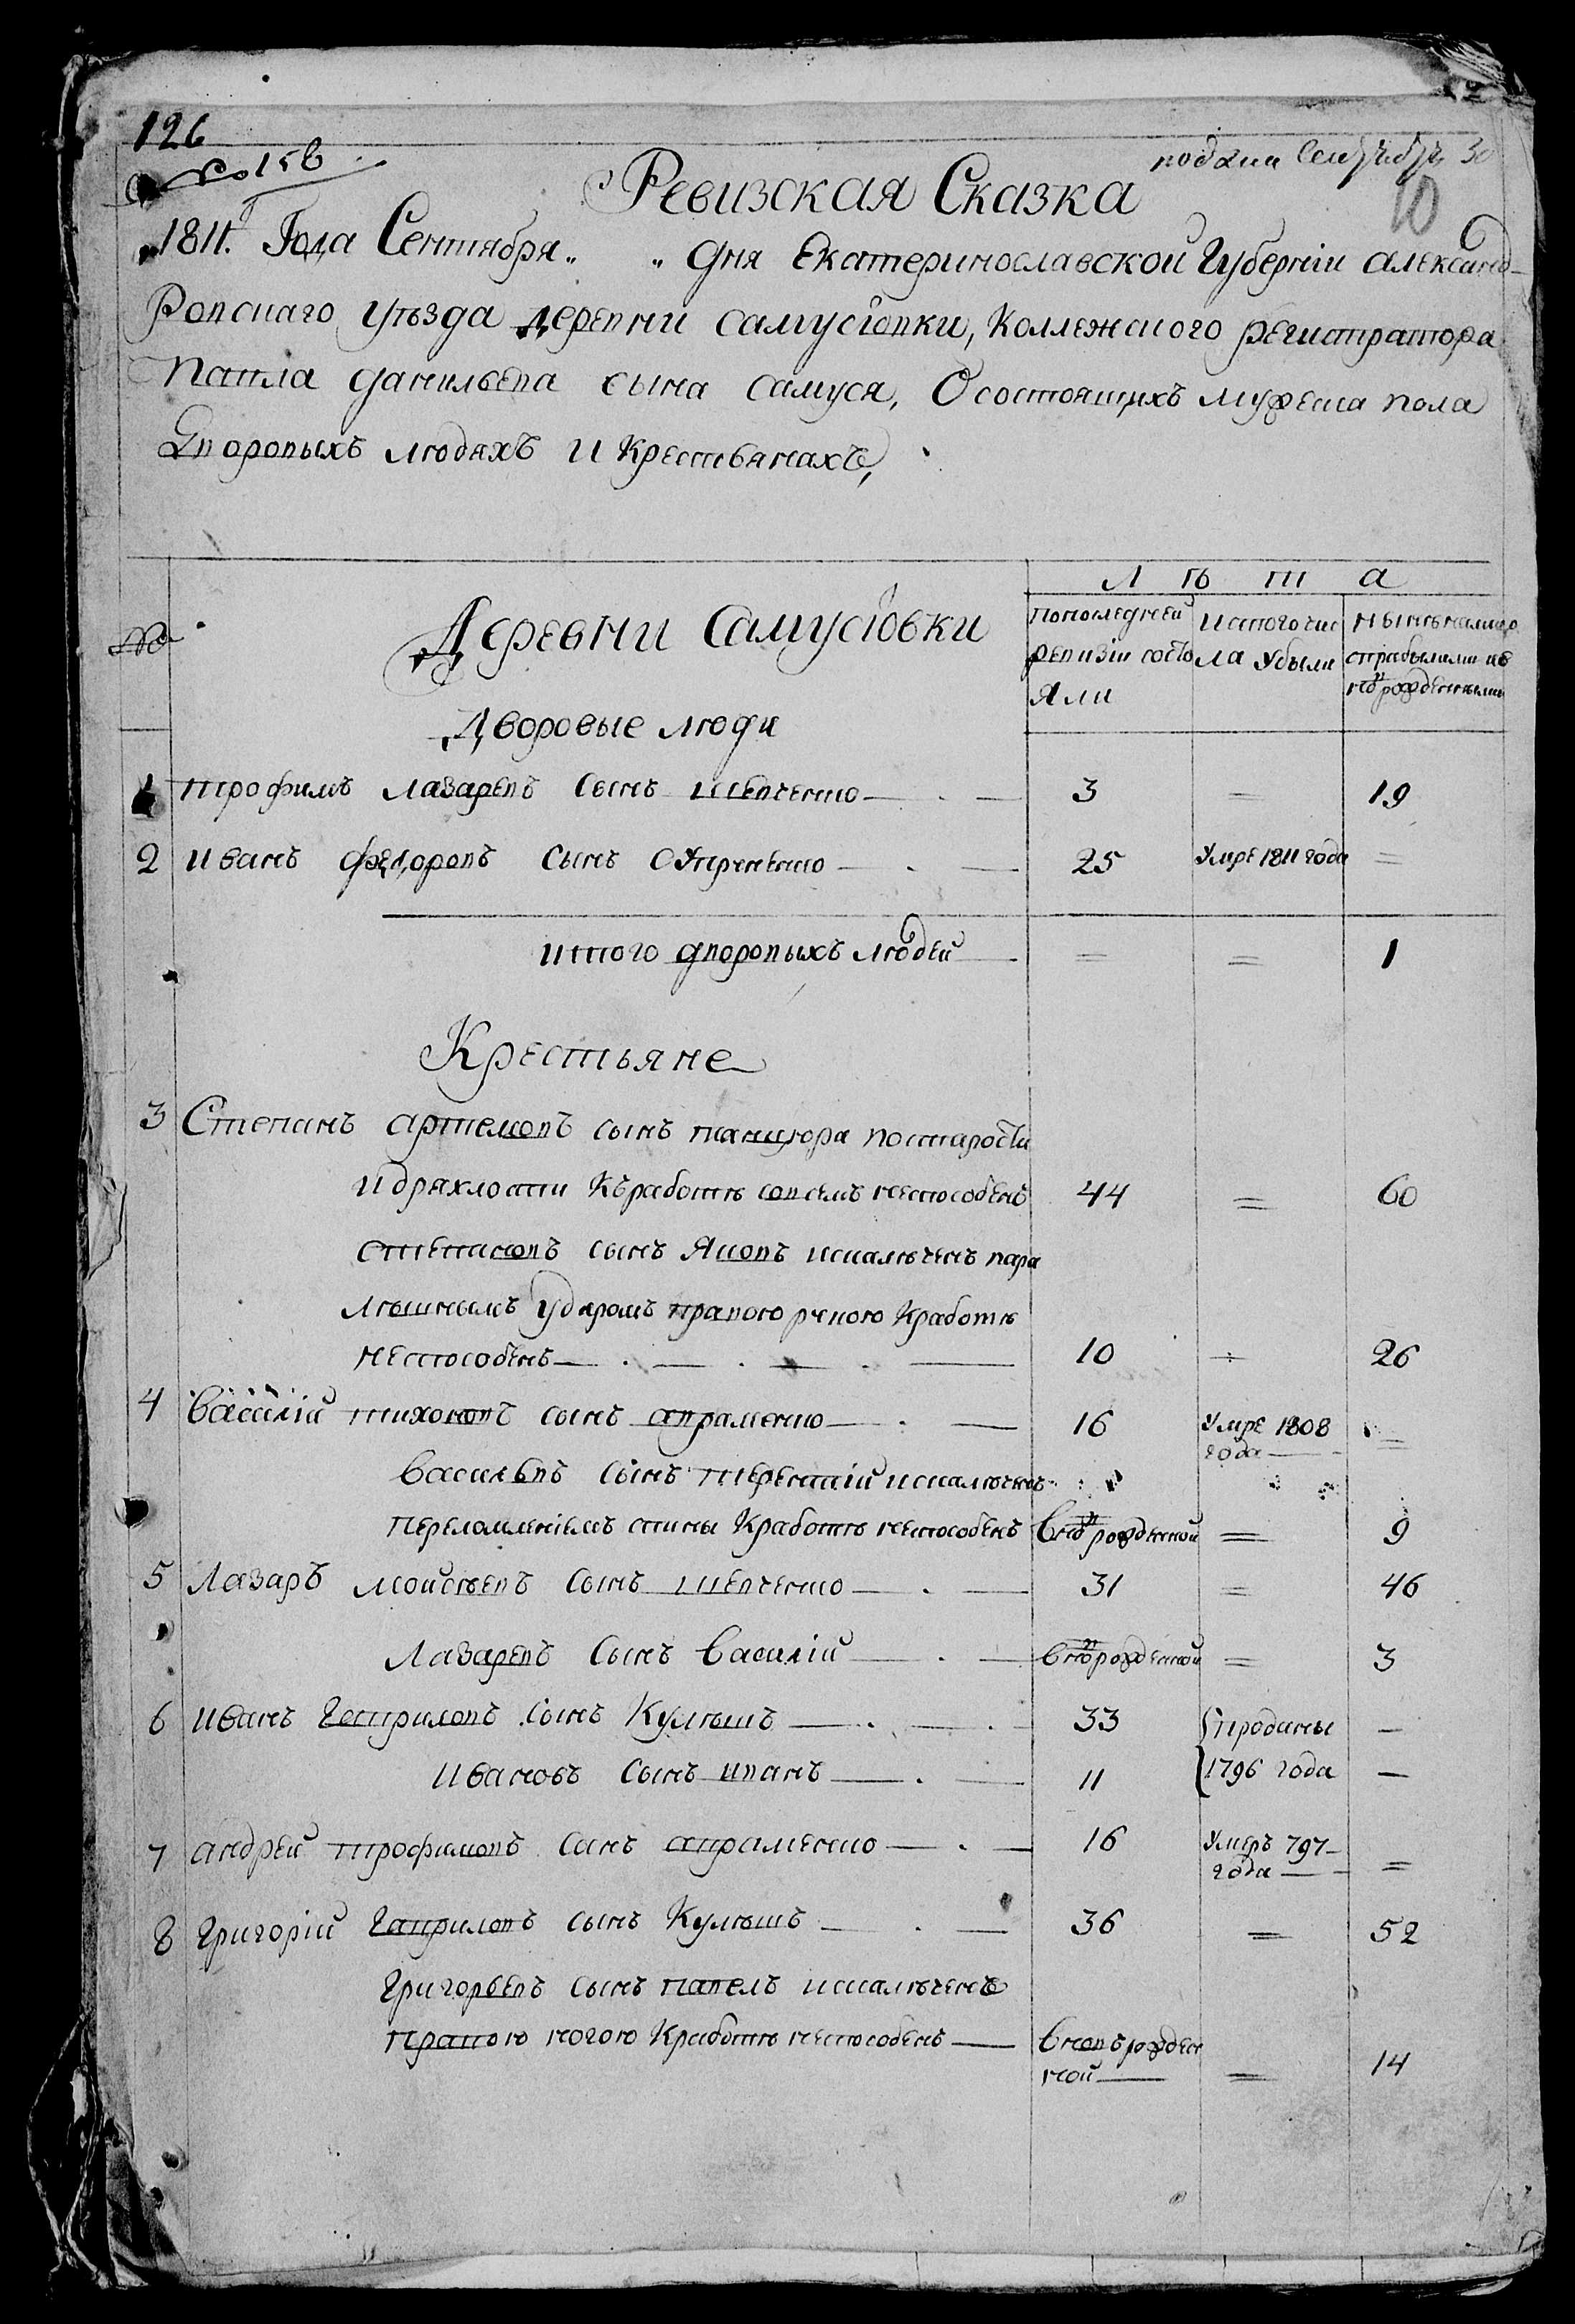 126
№ 156
подана Сентября 30
10
Ревизская Сказка
1811. Года Сентября „ „ дня Екатеринославской Губерніи александ-
ровскаго уѣзда деревни самусіовки, Коллежского регистратора
Павла данильева сына самуся, О состоящихъ мужеска пола
Дворовыхъ людяхъ и Крестьянахъ,
№
Деревни Самусіовки
Л ѣ т а
По последней ревизіи состояли
Ис того числа убыли
Нынѣ налицо с прибылыми и вновь рожденными
Дворовые люди
1 трофимъ лазаревъ сынъ шевченко — 3 = 19
2 иванъ федоровъ сынъ — 25 Умре 1811 года =
итого дворовыхъ людей — = = 1
Крестьяне
3 Степанъ артемовъ сынъ по старости
и дряхлости къ работѣ совсемъ неспособенъ 44 = 60
степановъ сынъ Яковъ искалѣченъ пара
лышнымъ ударомъ правою рукою к работѣ
неспособенъ — 10 = 26
4 Василій тихоновъ сынъ авраменко — 16 Умре 1808 года — =
васильевъ сынъ терентій искалѣченъ
переломленіемъ спины к работѣ неспособенъ вновь рожденной = 9
5 Лазаръ моисѣевъ сынъ шевченко — 31 = 46
Лазаревъ сынъ василій — вновь рожденной = 3
6 иванъ Гавриловъ сынъ Кулѣшъ — 33 проданы —
ивановъ сынъ иванъ — 11 1796 года —
7 андрей трофимовъ сынъ авраменко — 16 Умеръ 797- года — =
8 григорій Гавриловъ сынъ Кулѣшъ — 36 = 52
григорьевъ сынъ павелъ искалѣченъ
правою ногою к работѣ неспособенъ — вновь рожден
ной — = 14